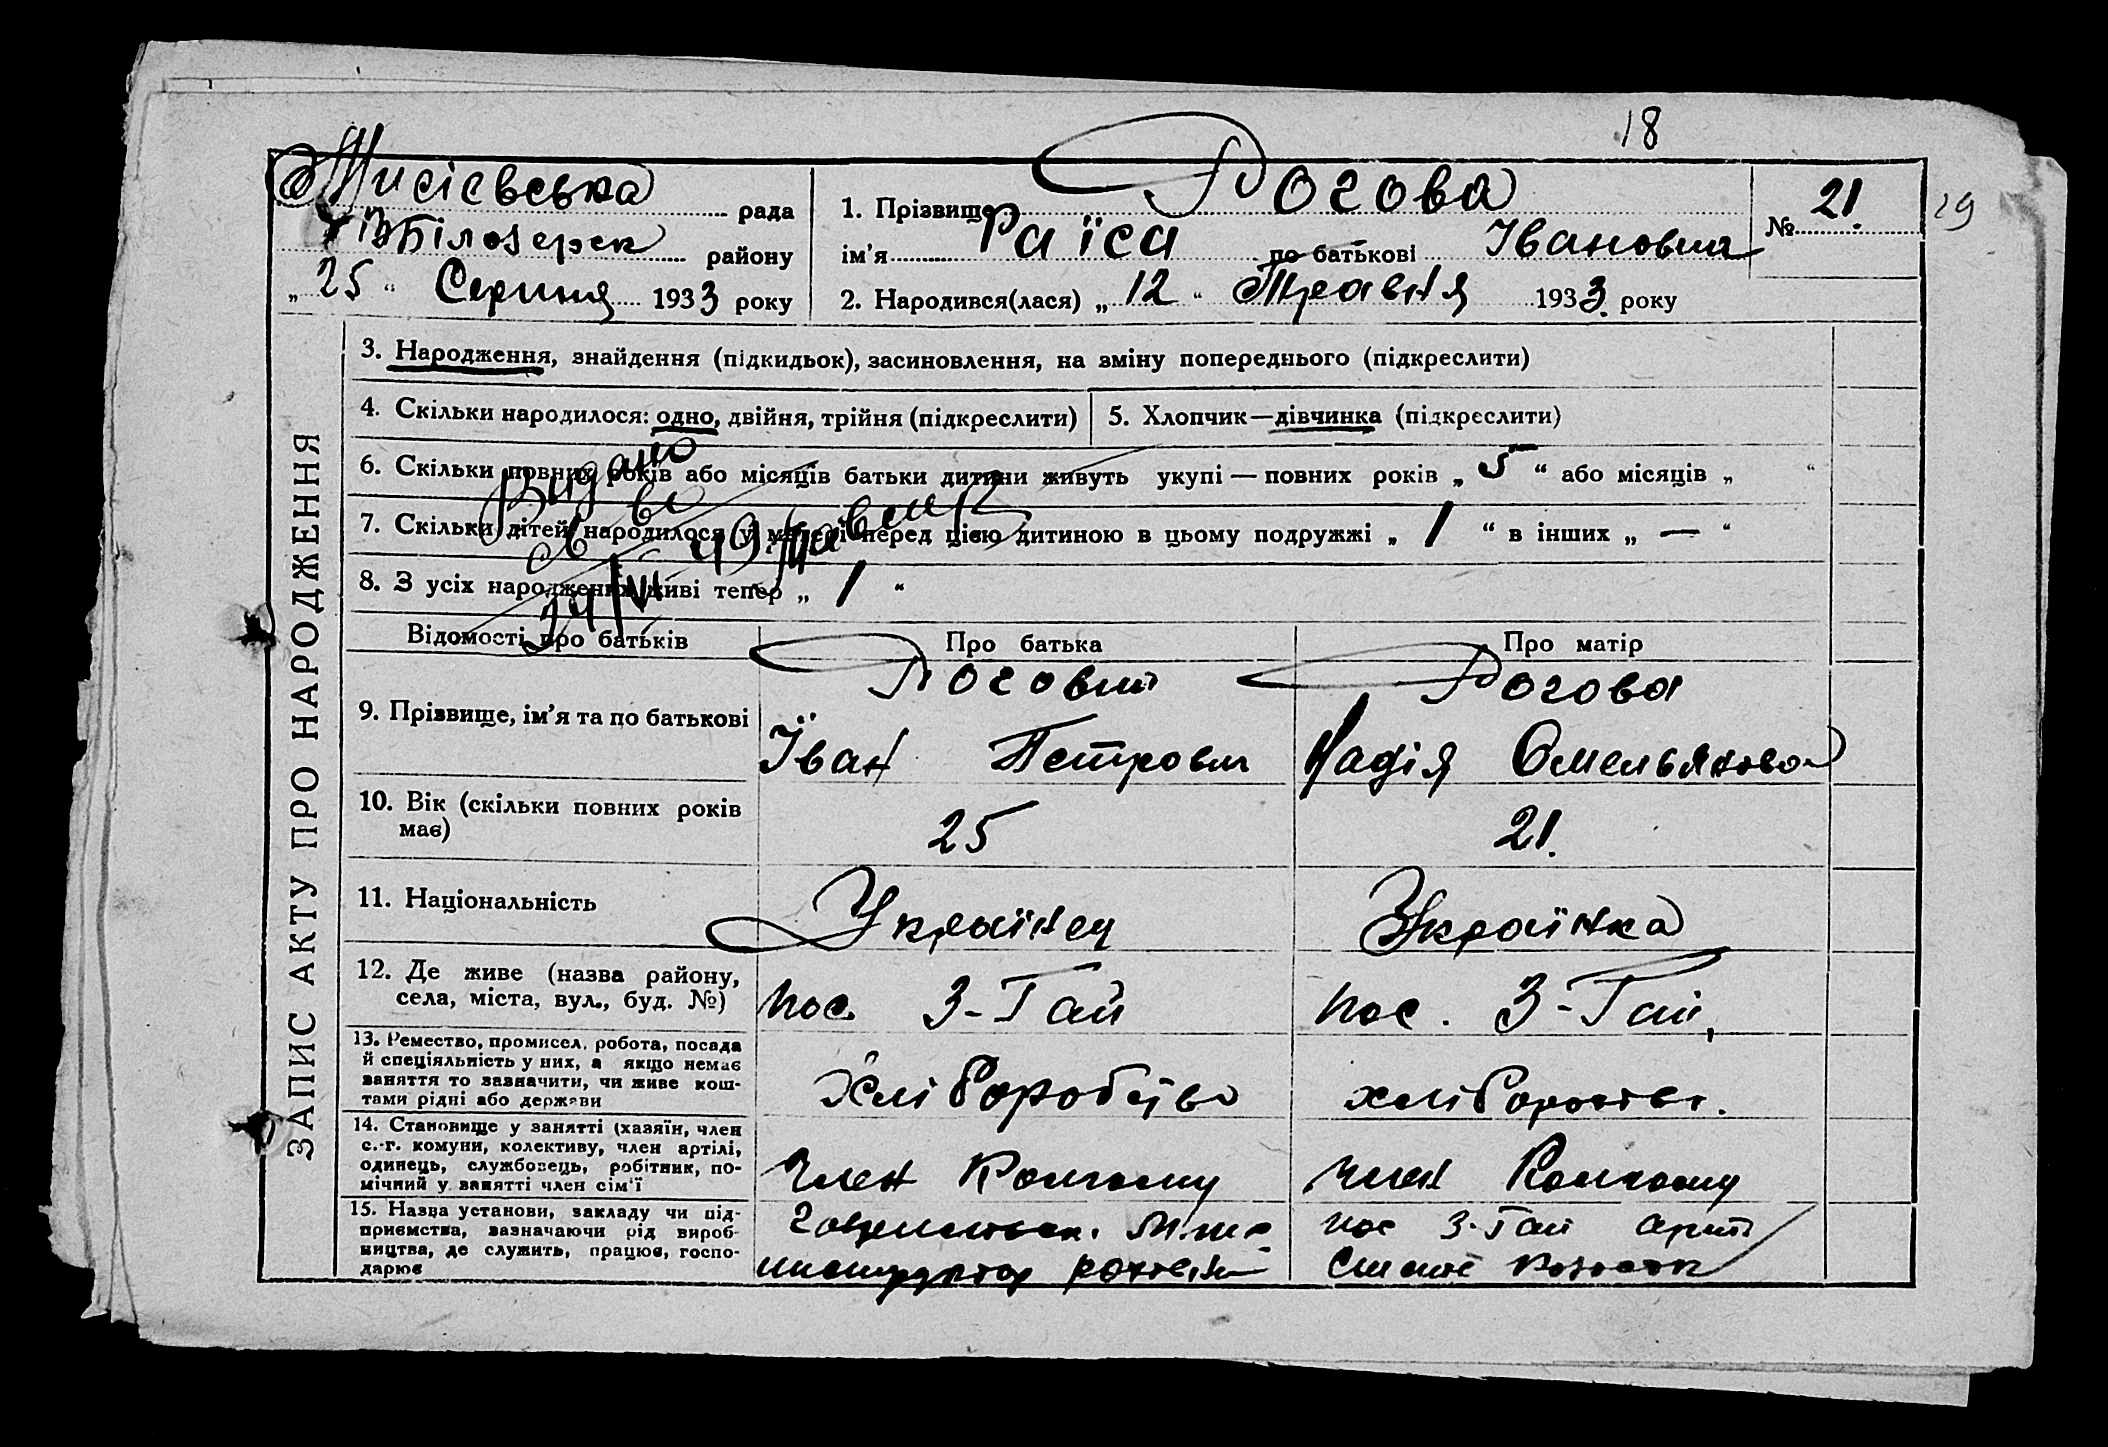 18
рада
1. Прізвище Рогова
№ 21.
29
Білозерск району
ім'я Раїса по батькові Івановна
„ 25 “ Серпня 1933 року
2. Народився(лася) „ 12 “ Травня 1933. року
ЗАПИС АКТУ ПРО НАРОДЖЕННЯ
3. Народження, знайдення (підкидьок), засиновлення, на зміну попереднього (підкреслити)
4. Скільки народилося: одно, двійня, трійня (підкреслити)
5. Хлопчик—дівчинка (підкреслити)
6. Скільки повних років або місяців батьки дитини живуть укупі — повних років „ 5 “ або місяців „ “
7. Скільки дітей народилося у матері перед цією дитиною в цьому подружжі „ 1 “ в інших „ — “
8. З усіх народжених живі тепер „ 1 “
Видано
Відомості про батьків
Про батька
Про матір
9. Прізвище, ім'я та по батькові
Роговий
Іван Петрович
Рогова
Надія Омельянова
10. Вік (скільки повних років має)
25
21.
11. Національність
Українец
Українка
12. Де живе (назва району, села, міста, вул., буд. №)
пос. 3-Гай
пос. 3-Гай,
13. Ремество, промисел, робота, посада й спеціяльність у них, а якщо немає заняття то зазначити, чи живе коштами рідні або держави
хліборобство
14. Становище у занятті (хазяїн, член с.-г. комуни, колективу, член артілі, одинець, службовець, робітник, помічний у занятті член сім'ї
Член Колгоспу
член Колгоспу
15. Назва установи, закладу чи підприємства, зазначаючи рід виробництва, де служить, працює, господарює
пос 3-Гай